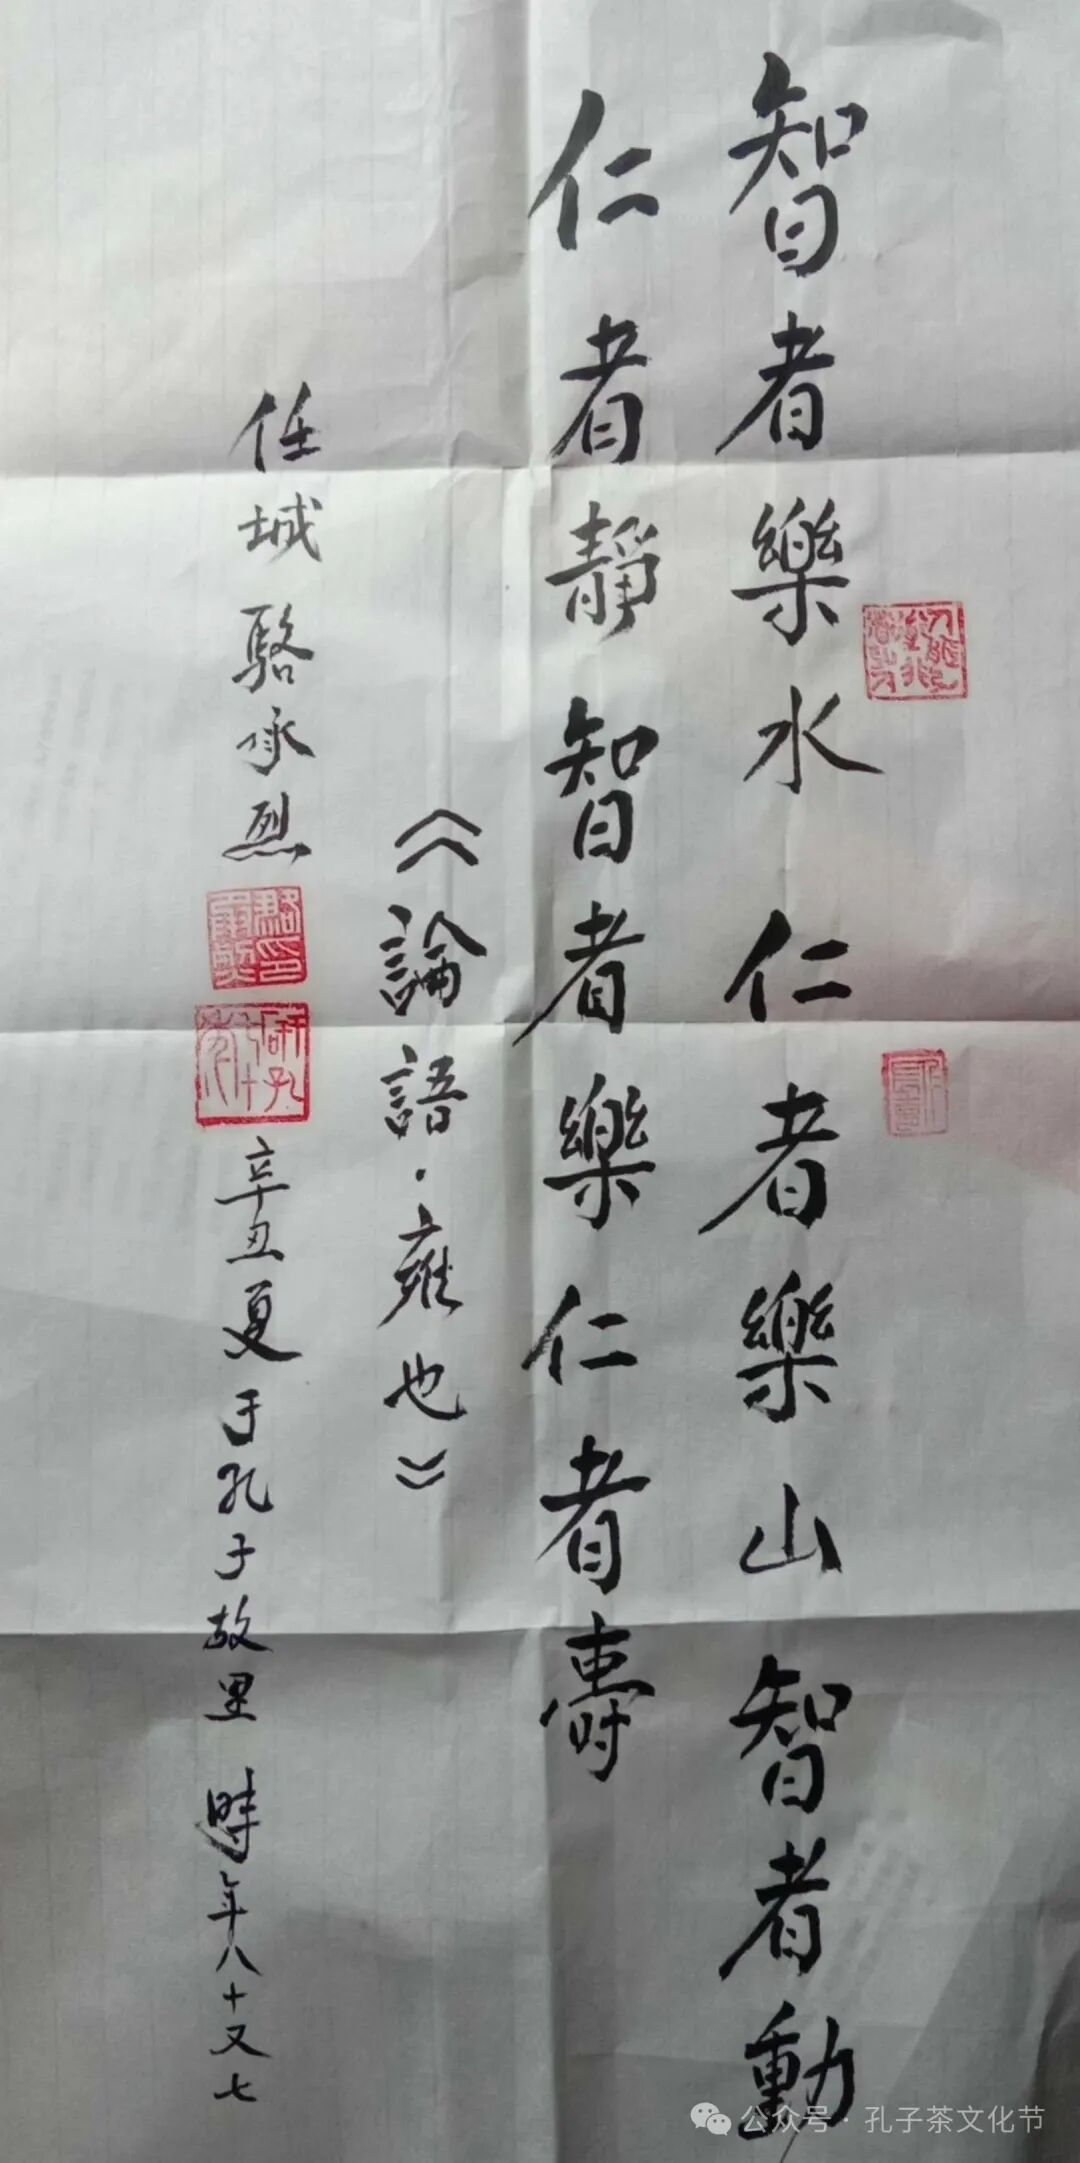 智者樂水仁者樂山智者動
仁者靜智者樂仁者壽
《論語·雍也》
任城駱承烈
辛丑夏于孔子故里 時年八十又七
公众号·孔子茶文化节